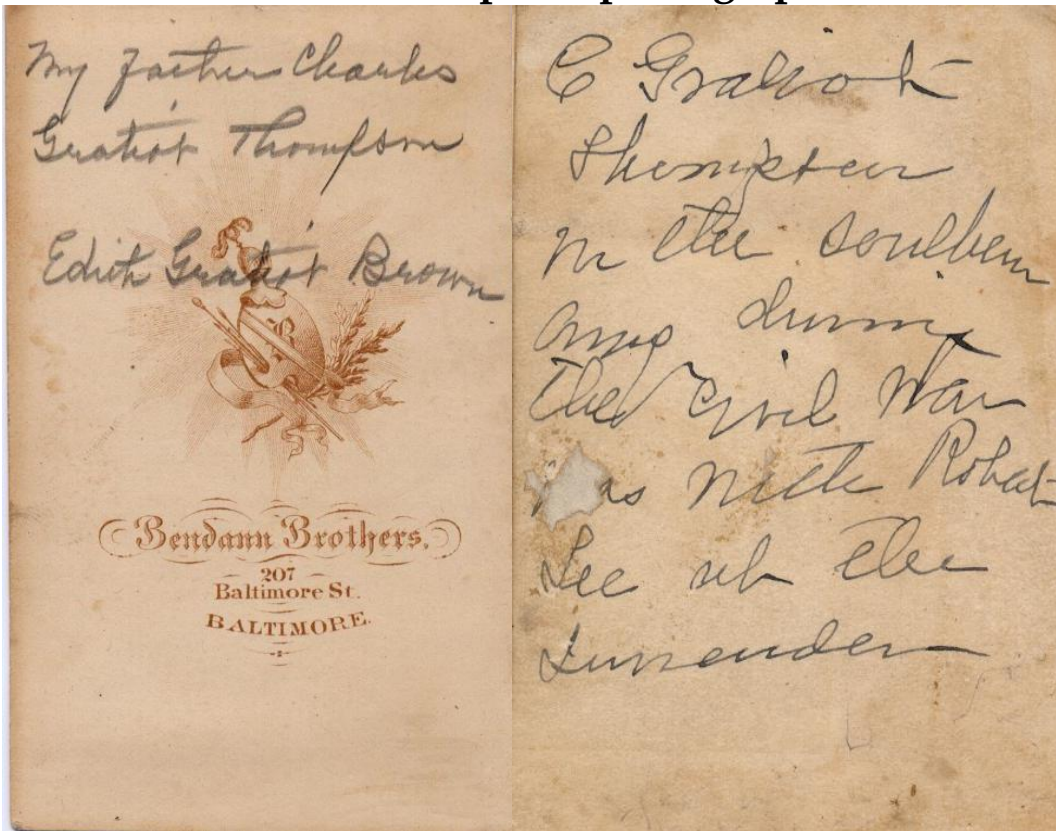 My father Charles
Gratiot Thompson
Edith Gratiot Brown
B
Bendann Brothers.
207
Baltimore St.
BALTIMORE.
C Gratiot
Thompson
in the southern
army during
the Civil War
was with Robert
Lee at the
Surrender